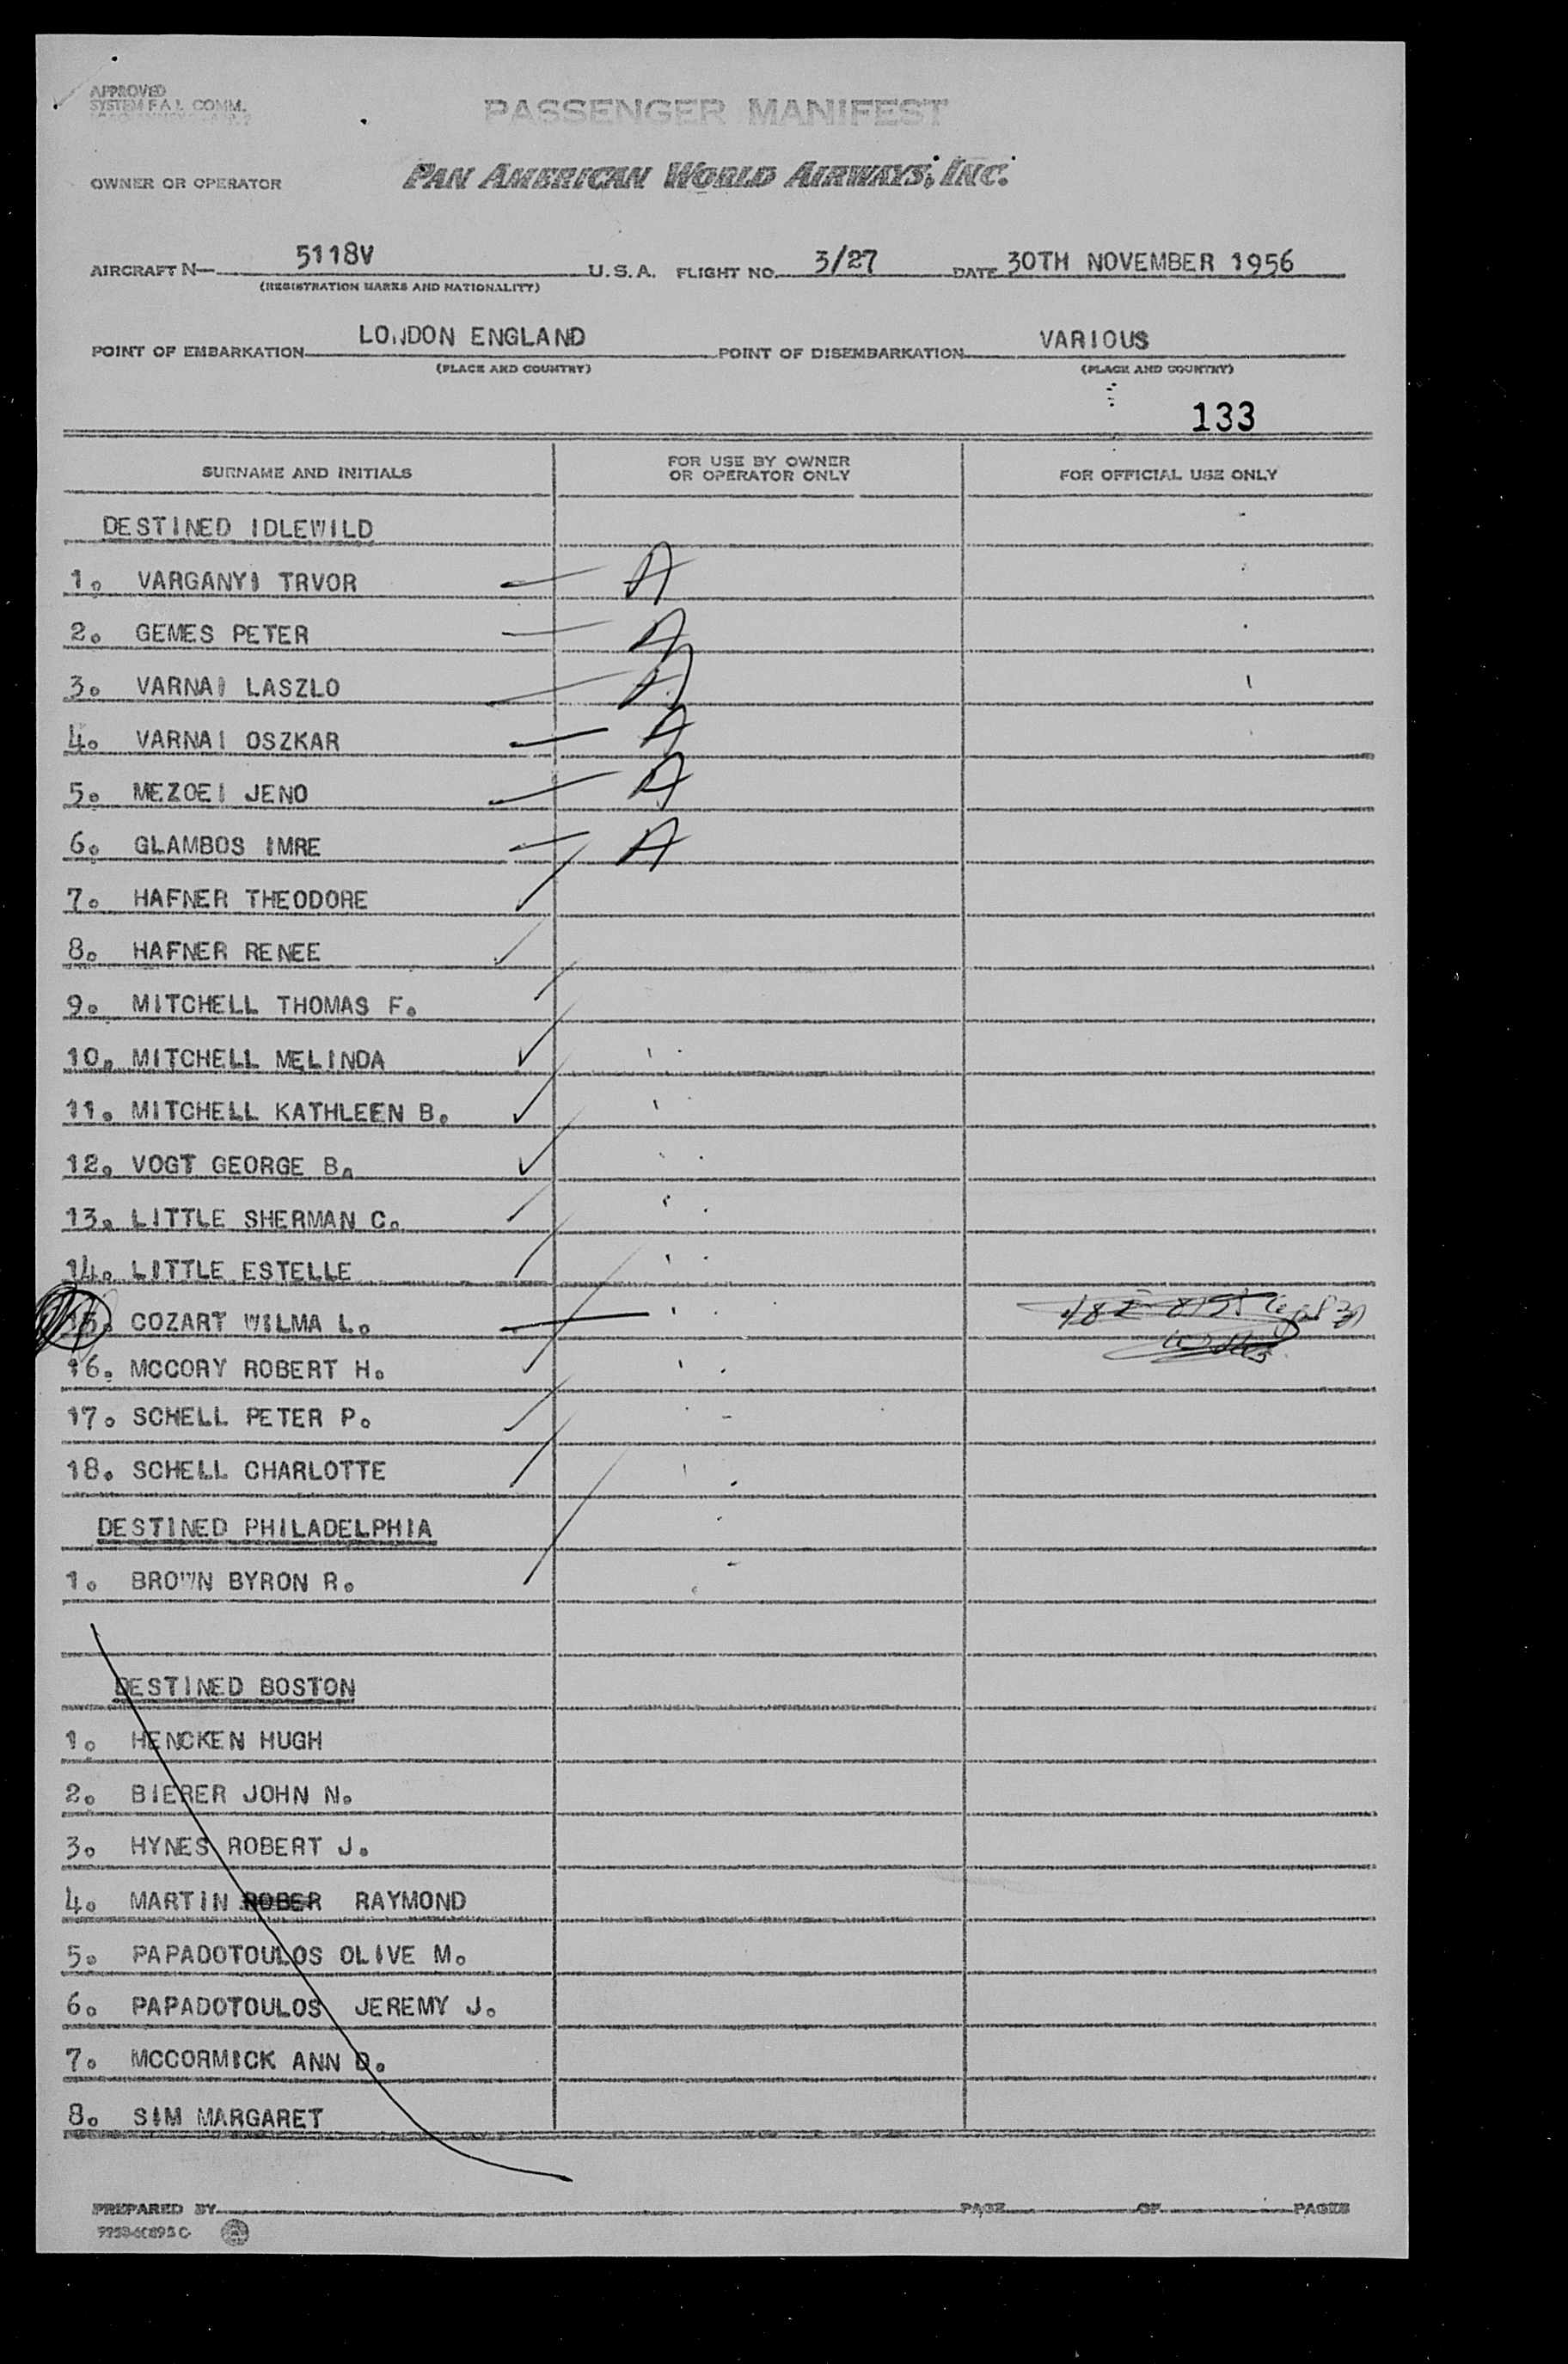 APPROVED
SYSTEM F.A.L. COMM.
PASSENGER MANIFEST
OWNER OR OPERATOR PAN AMERICAN WORLD AIRWAYS, INC.
AIRCRAFT N— 5118V U.S.A. FLIGHT NO. 3/27 DATE 30TH NOVEMBER 1956
(REGISTRATION MARKS AND NATIONALITY)
POINT OF EMBARKATION LONDON ENGLAND POINT OF DISEMBARKATION VARIOUS
(PLACE AND COUNTRY) (PLACE AND COUNTRY)
133
SURNAME AND INITIALS FOR USE BY OWNER OR OPERATOR ONLY FOR OFFICIAL USE ONLY
DESTINED IDLEWILD
1. VARGANYI TRVOR A
2. GEMES PETER A
3. VARNAI LASZLO A
4. VARNAI OSZKAR A
5. MEZOEI JENO A
6. GLAMBOS IMRE A
7. HAFNER THEODORE
8. HAFNER RENEE
9. MITCHELL THOMAS F.
10. MITCHELL MELINDA
11. MITCHELL KATHLEEN B.
12. VOGT GEORGE B.
13. LITTLE SHERMAN C.
14. LITTLE ESTELLE
15. COZART WILMA L.
16. MCCORY ROBERT H.
17. SCHELL PETER P.
18. SCHELL CHARLOTTE
DESTINED PHILADELPHIA
1. BROWN BYRON R.
DESTINED BOSTON
1. HENCKEN HUGH
2. BIERER JOHN N.
3. HYNES ROBERT J.
4. MARTIN ROBER RAYMOND
5. PAPADOTOULOS OLIVE M.
6. PAPADOTOULOS JEREMY J.
7. MCCORMICK ANN D.
8. SIM MARGARET
PREPARED BY PAGE OF PAGES